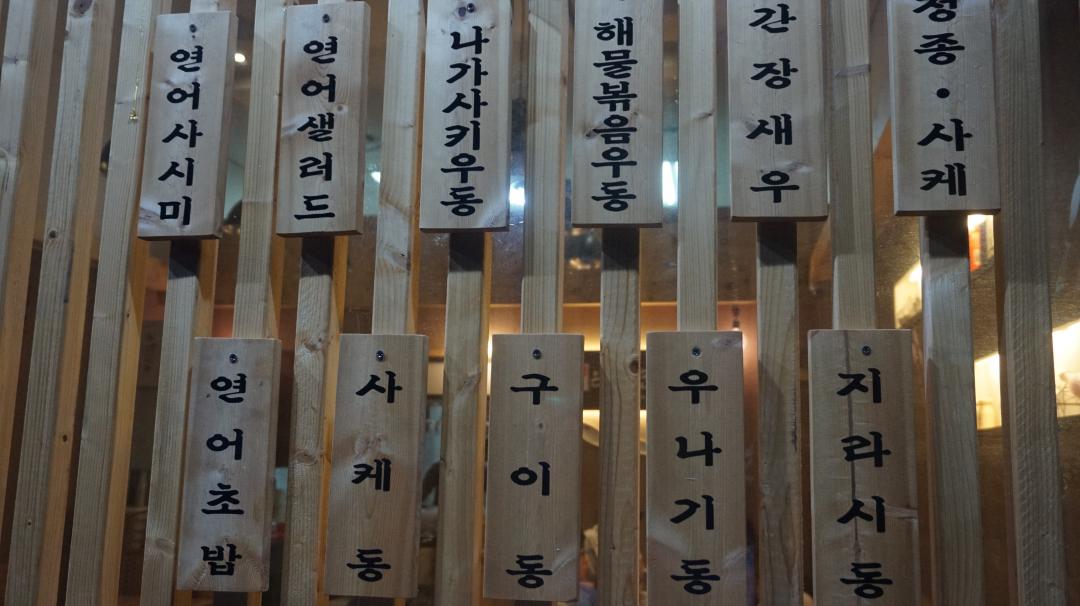 연어사시미
연어샐러드
나가사키우동
해물볶음우동
간장새우
정종·사케
연어초밥
사케동
구이동
우나기동
지라시동